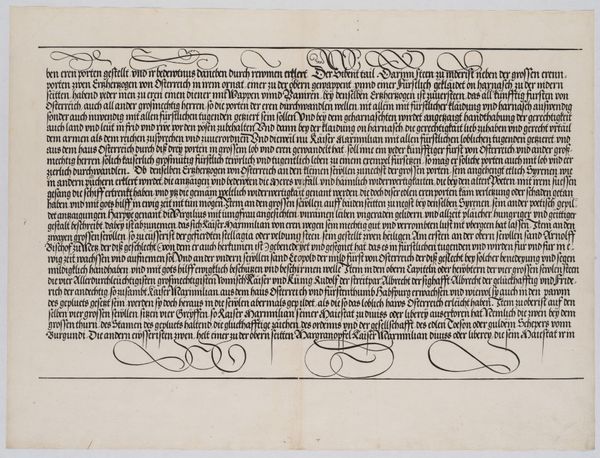 ben eren porten gestellt vnd ir bedewtnus daneben durch reymen erklert Der Sibent tail Darynn steen zu vnderist neben der grossen eeren
porten zwen Ertzhertzogen von Osterreich in irem ornat einer zu der obern gewappent vnnd einer Fürstlich geklaidet on harnasch zu der vndern
seitten habend yeder inen zu eren einen seiner mit Wappen vnnd Paniren bey denselben Ertzhertzogen ist zuuersteen das all künfftig fürsten von
Osterreich auch all ander groszmechtig herren so die porten der eren durchwandlen wellen mit allein mit fürstlicher klaidung vnd harnasch auszwendig
sonder auch inwendig mit allen fürstlichen tugenden getziert sein sollen Vnd bey dem geharnaschten wirdet angetzaigt handthabung der gerechtigkeit
auch land vnd leut in frid vnd rwe vor den posen zubehalten Vnd dann bey der klaidung on harnasch die gerechtigkeit lieb zuhaben vnd gerecht vrtail
dem armen als dem reichen zusprechen vnd zuuerordnen Vnd dieweil nu Kaiser Maximilian mit allen fürstlichen loblichen tugenden getziert vnd
aus dem haus Osterreich durch disz drey porten in grossem lob vnd eren gewandelt hat soll ime ein yeder künfftiger fürst von Osterreich vnd ander grosz
mechtig herren solich kaiserlich groszmütig fürstlich teürlich vnd tugentlich leben zu einem exempel fürsetzen so mag er soliche porten auch mit lob vnd eer
zierlich durchwandlen Ob denselben Ertzhertzogen von Osterreich an den kleinen seyllen zunechst der grossen porten sein angehengt etlich Syrenen wie
in andern püchern erklert wirdet die antzaigen vnd bedewten
gesang die schiff ertrenckt haben vnd ytz die gemain weltlich widerwertigkait genant werden die doch diser eben eren porten kain verletzung oder schaden getan
haben vnd mit gots hilff in ewig zeit nit tun mögen Item an den grossen seyllen auff baiden seitten zunegst bey denselben Syrenen sein ander poetisch
der antzaigungen Harpye genant die Virgilius mit iungfrau angesichten vnrainen leiben vngeraden gelidern vnd allzeit plaicher hungriger vnd geittiger
gestalt beschreibt dabey ist abzunemen das sich Kaiser Maximilian von eren wegen sein mechtig gut vnd verrömten lust nit vberwen hat lassen Item an den
zwayen grossen seyllen so zu eusserist der gerechten stellagen oder veldung steen sein gestellt zwen heiligen Am ersten an der obern seyllen Sand Arnolff
Bischof zu Metz der disz geschlecht (von dem er auch herkumen ist) gebenedeyet vnd gesegnet hat das es in fürstlichen tugenden vnd wirden für vnd für in e-
wig zeit wachssen vnd aufnemen sol Vnd an der vndern seyllen Sand Leopolt der mild fürst von Osterreich der disz geslecht bey solicher benedeyung vnd segen
miltiglich handthaben vnd mit gots hilff ewigklich beschutzen vnd beschirmen welle Item in den obern Capiteln oder hewbtern der vier grossen seyllen steen
die vier Allerdurchleuchtigisten groszmechtigisten Römisch Kaiser vnd Künig Rudolf der streitpar Albrecht der sighafft Albrecht der glückhafftig vnd Fride-
rich der andechtig so zusambt Kaiser Maximilian aus dem haus Osterreich vnd fürstenthumb Habspurg erwachsen vnd wiewol sy auch in den zwayen
des gepluets gesetzt sein werden sy doch heraus in die seyllen abermals gepildet als die so das loblich haws Osterreich erleücht haben Item zu oberist auf den
selben vier grossen seyllen sitzen vier Greyffen so Kaiser Maximilian seiner Maiestat zu diuisz oder liberey auszerkoren hat Nemlich die zwen bey dem
grossen thurn des Stamen des gepluets haltend die gluckhafftige zaichen des ordenns vnd der geselschafft des edlen Toeson oder guldein Schepers vonn
Burgundi Die andern eüsseristen zwen helt einer zu der obern seitten Margranopffel Kaiser Maximilian diuisz oder liberey die sein Maiestat in ir